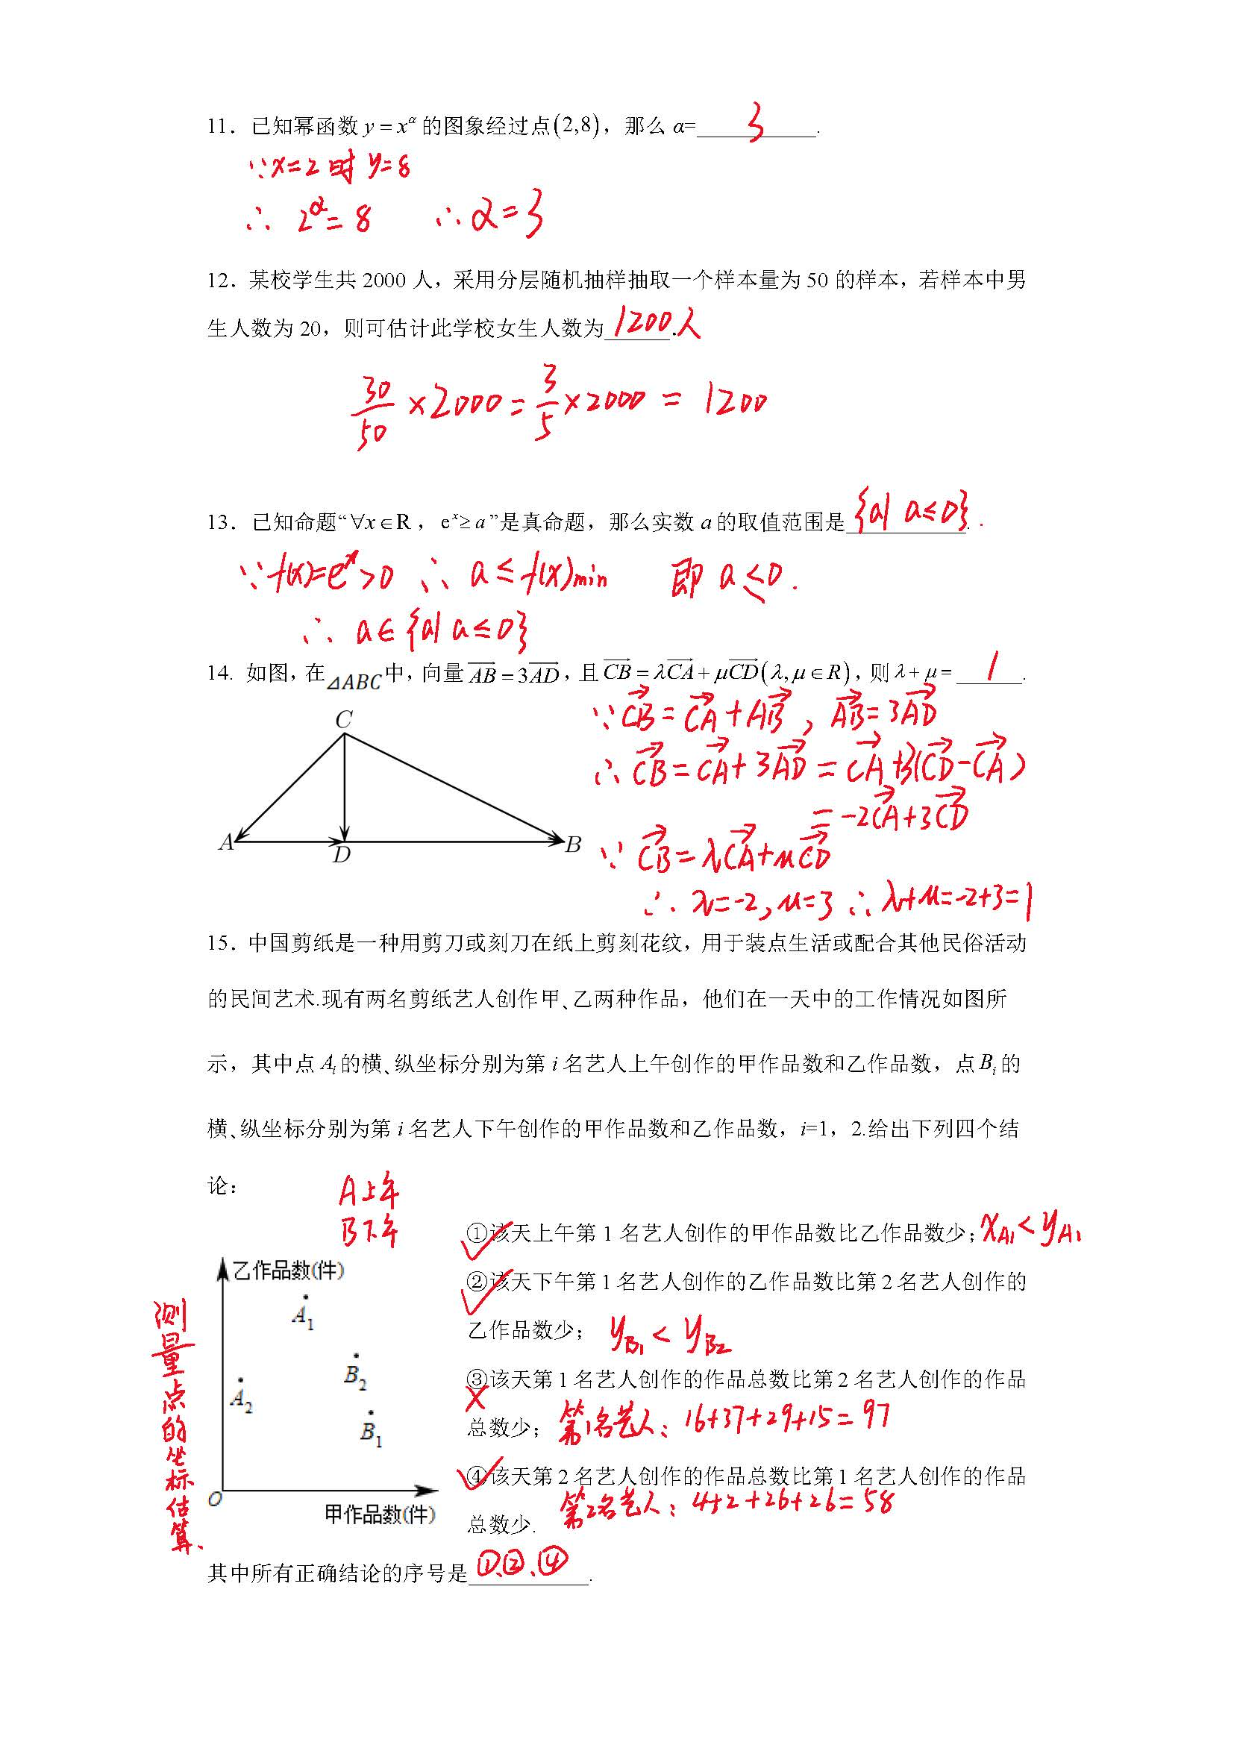 11．已知幂函数 y = x^α 的图象经过点(2,8)，那么 α= 3 .
∵x=2时 y=8
∴ 2^α = 8 ∴α=3
12．某校学生共 2000 人，采用分层随机抽样抽取一个样本量为 50 的样本，若样本中男
生人数为 20，则可估计此学校女生人数为 1200人 .
30/50 ×2000 = 3/5 ×2000 = 1200
13．已知命题“∀x∈R， e^x≥a”是真命题，那么实数 a 的取值范围是 {a| a≤0} .
∵f(x)=e^x>0 ∴ a≤f(x)min 即 a≤0.
∴ a∈{a| a≤0}
14. 如图，在△ABC中，向量 AB = 3AD，且 CB = λCA + μCD(λ,μ∈R)，则 λ+μ= 1 .
∵CB = CA + AB, AB = 3AD
∴ CB = CA + 3AD = CA + 3(CD - CA)
= -2CA + 3CD
∵ CB = λCA + μCD
∴ λ=-2, μ=3 ∴ λ+μ=-2+3=1
C
A
D
B
15．中国剪纸是一种用剪刀或刻刀在纸上剪刻花纹，用于装点生活或配合其他民俗活动
的民间艺术.现有两名剪纸艺人创作甲、乙两种作品，他们在一天中的工作情况如图所
示，其中点 A_i 的横、纵坐标分别为第 i 名艺人上午创作的甲作品数和乙作品数，点 B_i 的
横、纵坐标分别为第 i 名艺人下午创作的甲作品数和乙作品数，i=1，2.给出下列四个结
论：
A上午
B下午
①该天上午第 1 名艺人创作的甲作品数比乙作品数少; x_A1 < y_A1
②该天下午第 1 名艺人创作的乙作品数比第 2 名艺人创作的
乙作品数少； y_B1 < y_B2
③该天第 1 名艺人创作的作品总数比第 2 名艺人创作的作品
总数少； 第1名艺人：16+37+29+15=97
④该天第 2 名艺人创作的作品总数比第 1 名艺人创作的作品
总数少. 第2名艺人：4+2+26+26=58
乙作品数(件)
A_1
B_2
A_2
B_1
O
甲作品数(件)
测量点的坐标估算.
其中所有正确结论的序号是 ①、②、④ .